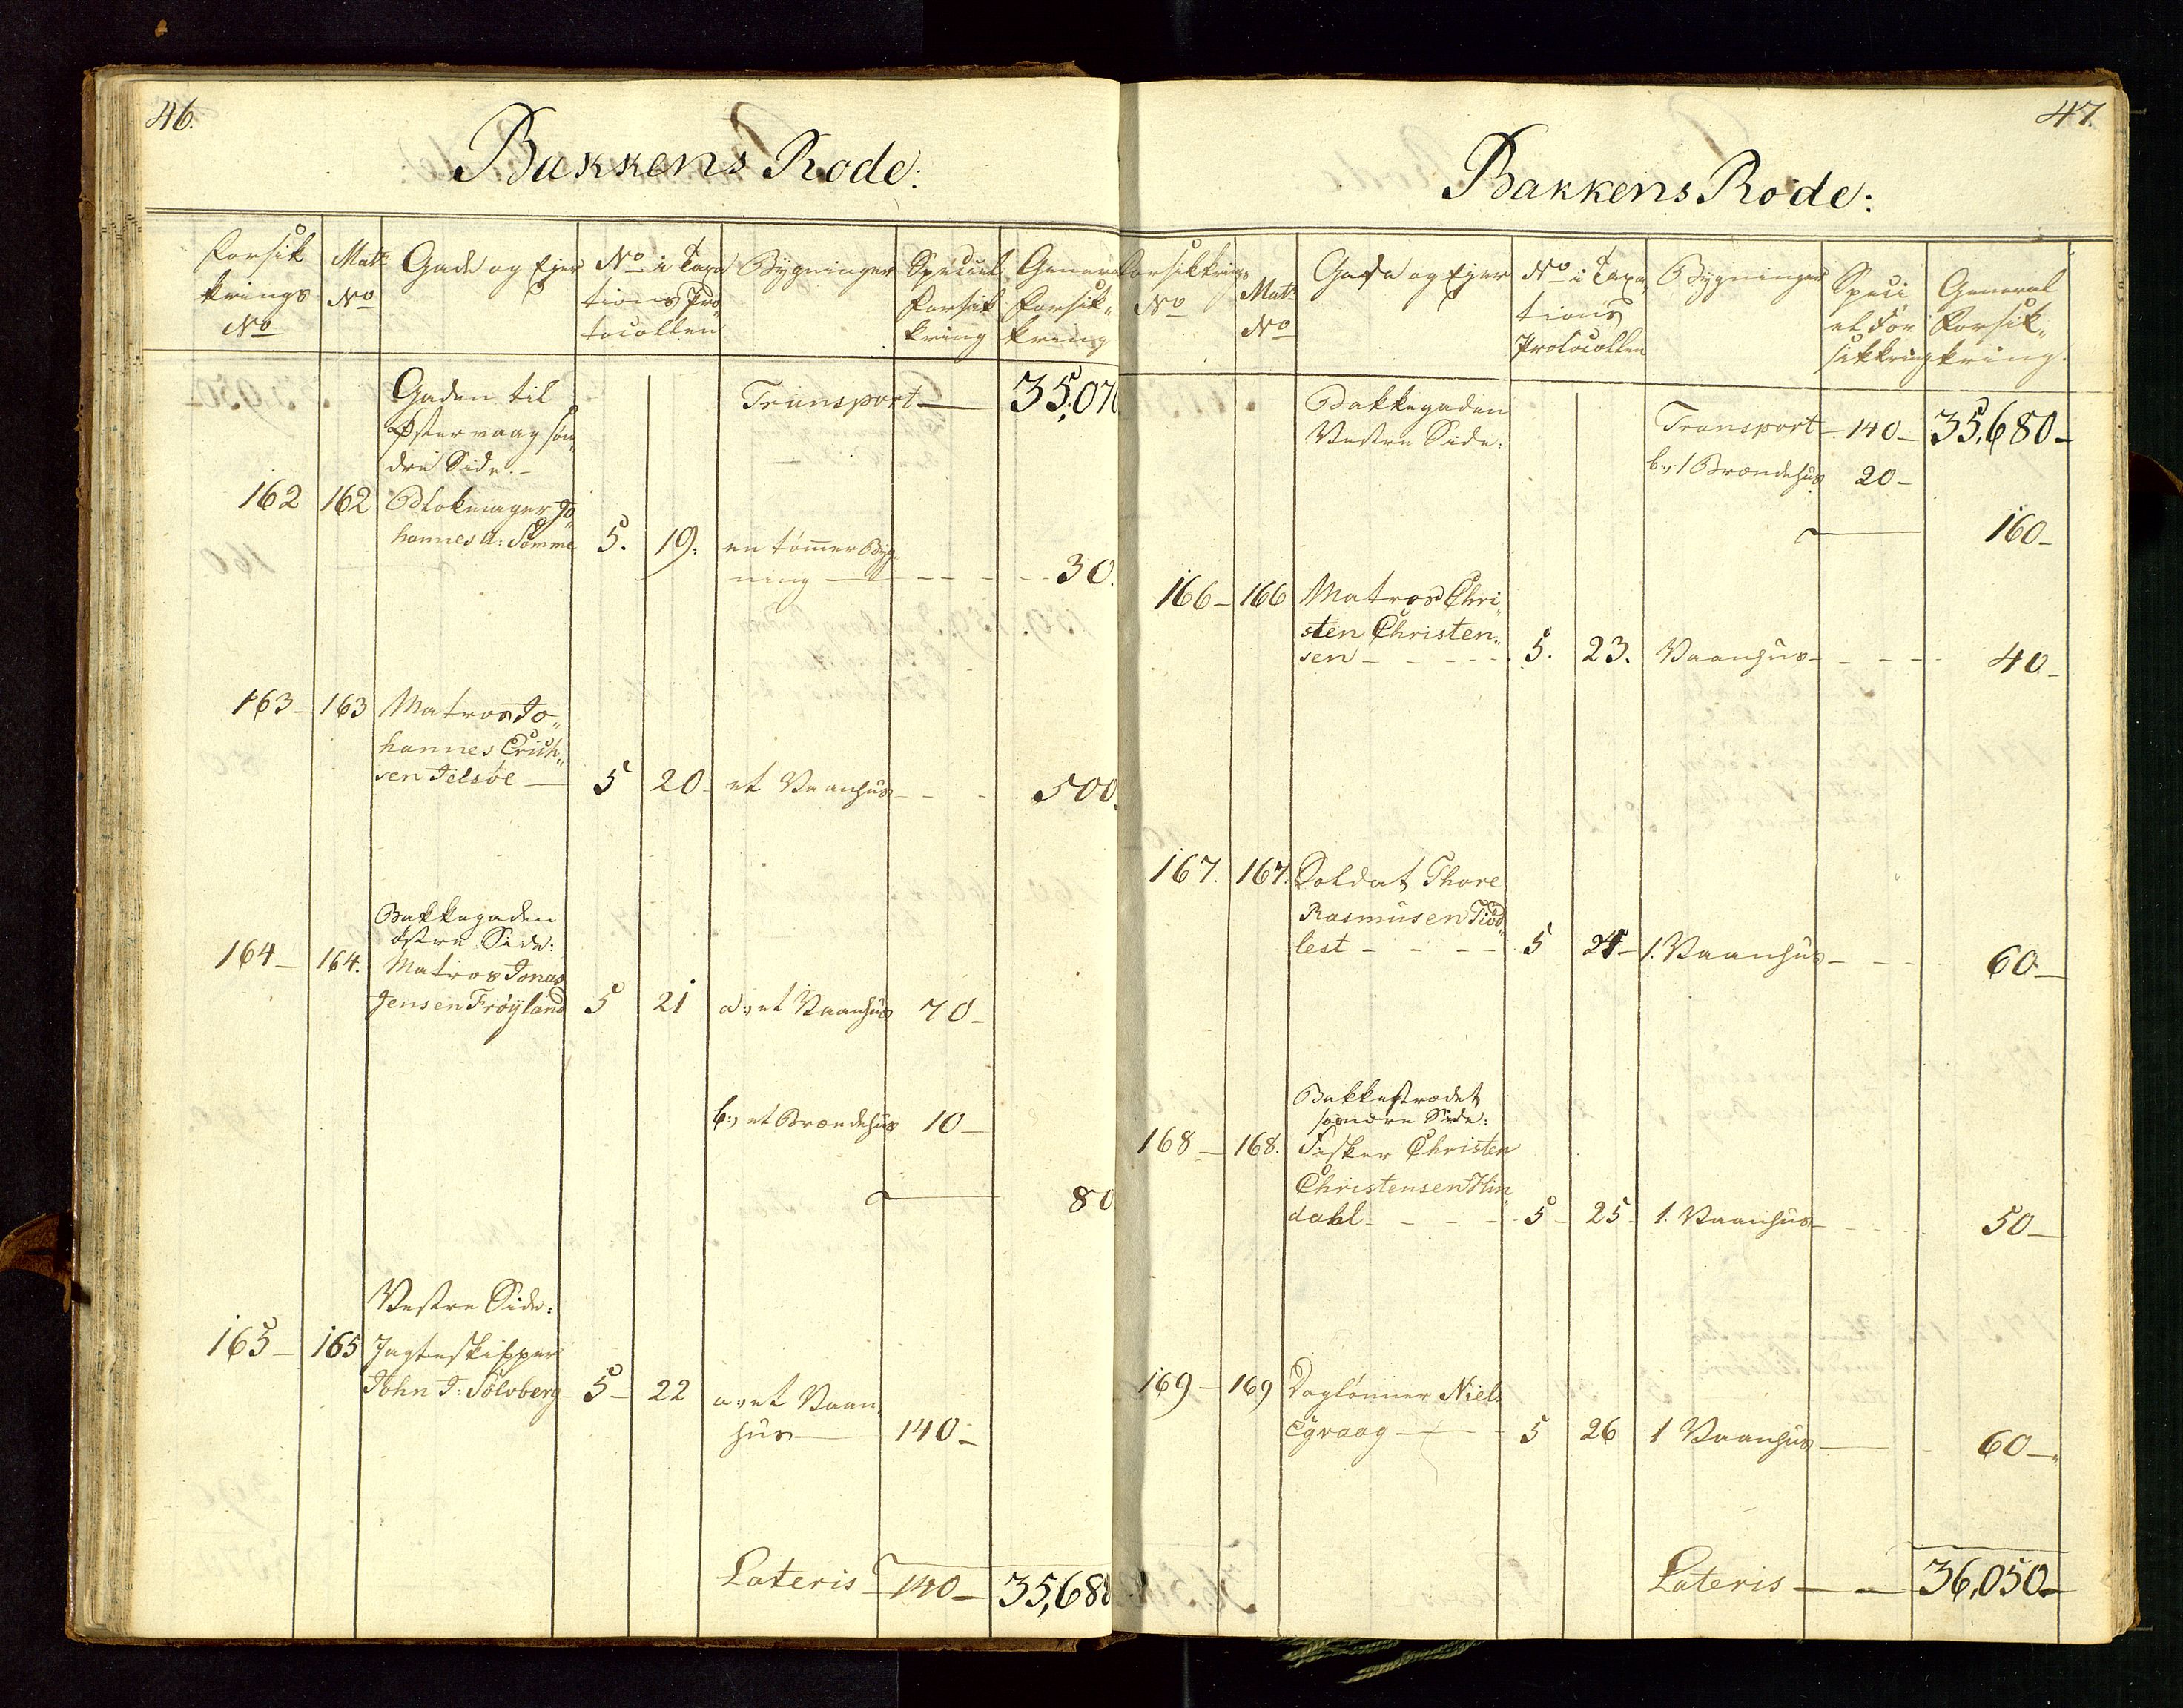 46.
Bakkens Rode:
Forsik
krings
No
Matr
No
Gade og Ejer
No i Taxa
tions Pro
tocollen
Bygninger
Speciel
Forsik
kring
General
Forsik-
kring
Gaden til
Østervaag søn
dre Side.-
Transport — 35,070
162 162 Blokmager Jo
hannes A: Sømme 5. 19. en tømmer Byg-
ning — 30.
163- 163 Matros Jo-
hannes Erich-
sen Jelsøe — 5 20- et Vaanhus - - 500.
Bakkegaden
østre Side:
164- 164. Matros Jonas
Jensen Frøyland 5 21 a, et Vaanhus 70-
b:, et Brændehus 10-
80
Vestre Side:
165- 165 Jagteskipper
John J: Sølvberg- 5- 22 a, et Vaan
hus — 140-
Lateris 140- 35,680
47.
Bakkens Rode:
Forsikkrings
No
Matr
No
Gade og Ejer
No i Taxa,
tions
Protocollen
Bygninger
Speci
el For
sikkring
General
Forsik-
kring.
Bakkegaden
Vestre Side:
Transport- 140- 35,680-
b:, 1 Brændehus 20-
160-
166- 166 Matros Chri-
sten Christen-
sen - - - - 5. 23. Vaanhus - - - - 40-
167. 167. Soldat Thore
Rasmusen Tiød-
lest - - - - 5 24- 1. Vaanhus - - - 60-
Bakkestrædet
søndre Side:
168- 168. Fisker Christen
Christensen Hin-
dahl - - - - 5- 25- 1. Vaanhus - - - 50-
169- 169 Daglønner Niels
Egraag — 5 26 1 Vaanhus — 60-
Lateris — — 36,050-